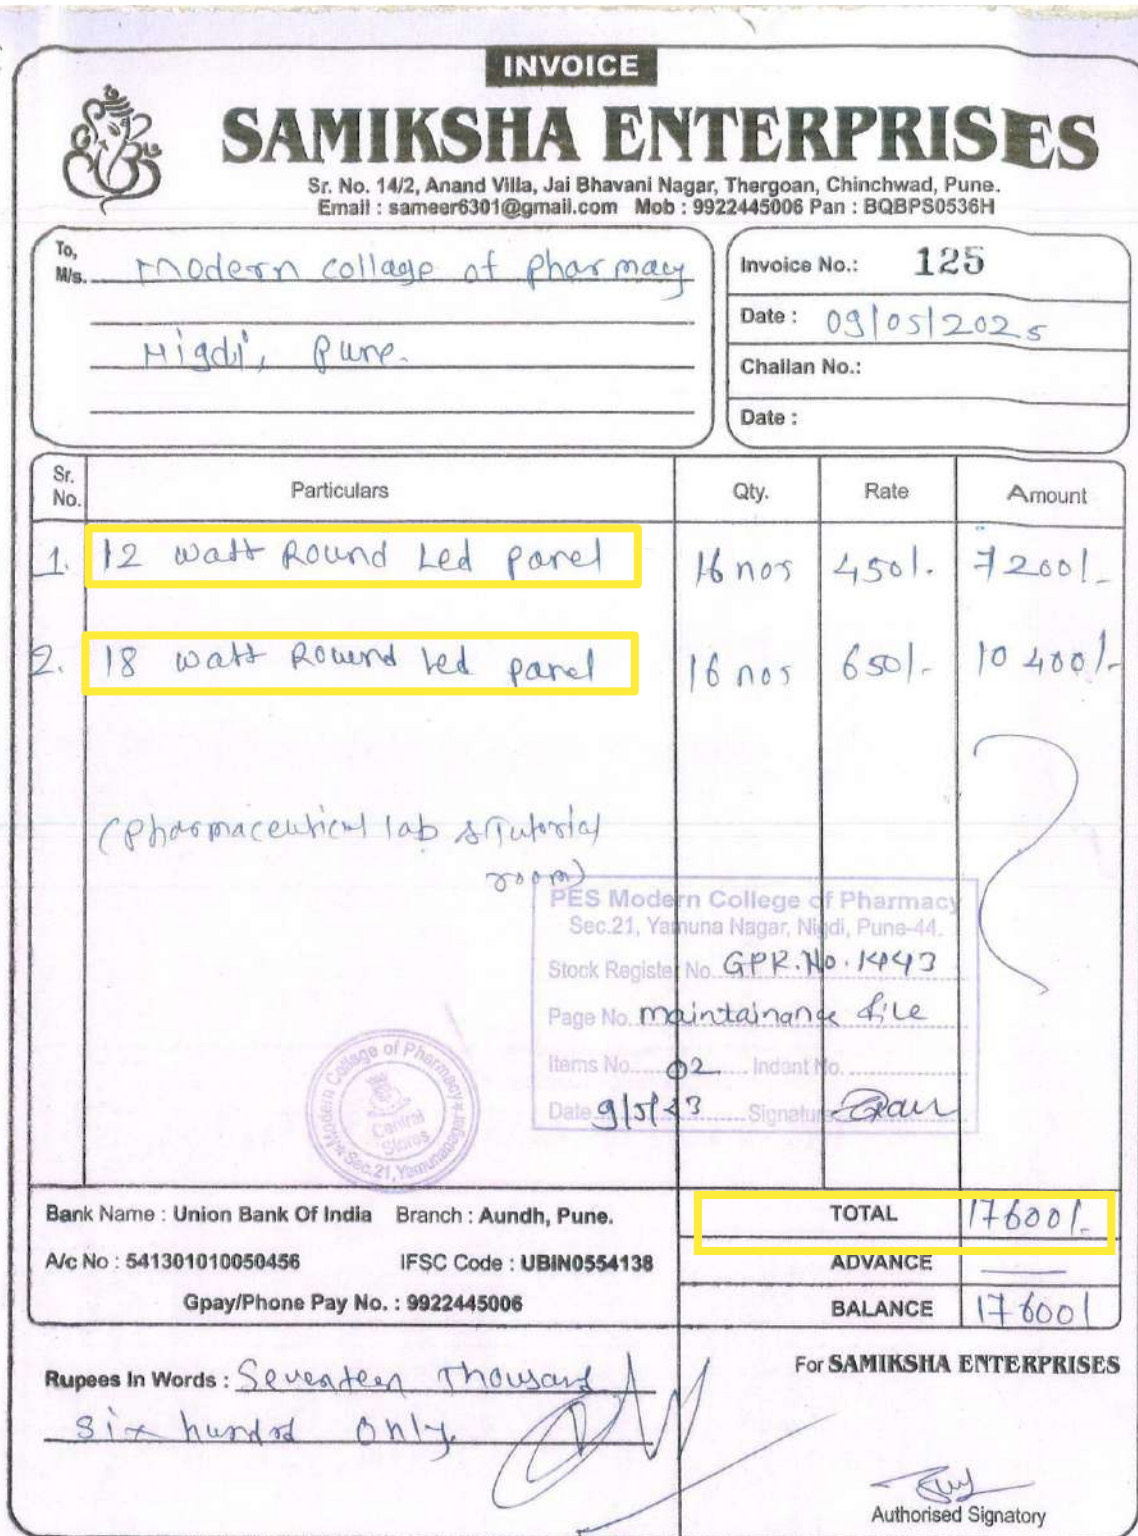 INVOICE
SAMIKSHA ENTERPRISES
Sr. No. 14/2, Anand Villa, Jai Bhavani Nagar, Thergoan, Chinchwad, Pune.
Email : sameer6301@gmail.com Mob : 9922445006 Pan : BQBPS0536H
To,
M/s. Modern collage of pharmacy
Nigdi, Pune.
Invoice No.: 125
Date : 09/05/2025
Challan No.:
Date :
Sr. No. Particulars Qty. Rate Amount
1. 12 watt Round Led panel 16 nos 450/. 7200/-
2. 18 watt Round Led panel 16 nos 650/- 10400/-
(Pharmaceutical lab & Tutorial
room)
PES Modern College of Pharmacy
Sec.21, Yamuna Nagar, Nigdi, Pune-44.
Stock Register No. GPR.No.1443
Page No. maintainance file
Items No. 02 Indent No.
Date 9/5/23 Signature
Modern College of Pharmacy
Central
Stores
Sec.21, Yamunanagar
Bank Name : Union Bank Of India Branch : Aundh, Pune.
A/c No : 541301010050456 IFSC Code : UBIN0554138
Gpay/Phone Pay No. : 9922445006
TOTAL 17600/-
ADVANCE —
BALANCE 17600/
Rupees In Words : Seventeen Thousand
Six hundred only.
For SAMIKSHA ENTERPRISES
Authorised Signatory